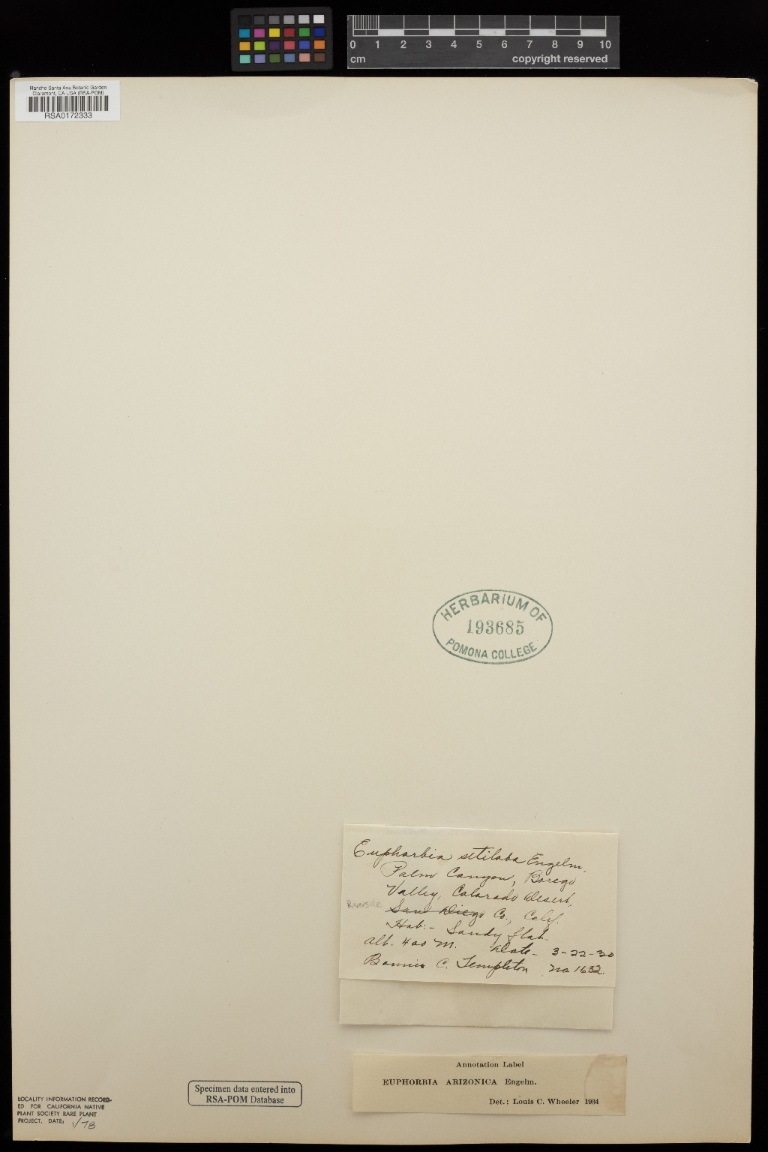 0 1 2 3 4 5 6 7 8 9 10
cm copyright reserved
Rancho Santa Ana Botanic Garden
Claremont, CA USA (RSA-POM)
RSA0172333
HERBARIUM OF
193685
POMONA COLLEGE
Euphorbia setiloba Engelm.
Palm Canyon, Borego
Valley, Colorado Desert,
San Diego Co., Calif.
Hab:- Sandy flat.
Alt. 400 M. Date- 3-22-30
Bonnie C. Templeton no 1632
Annotation Label
EUPHORBIA ARIZONICA Engelm.
Det.: Louis C. Wheeler 1934
Specimen data entered into
RSA-POM Database
LOCALITY INFORMATION RECORD-
ED FOR CALIFORNIA NATIVE
PLANT SOCIETY RARE PLANT
PROJECT. DATE: 1/78